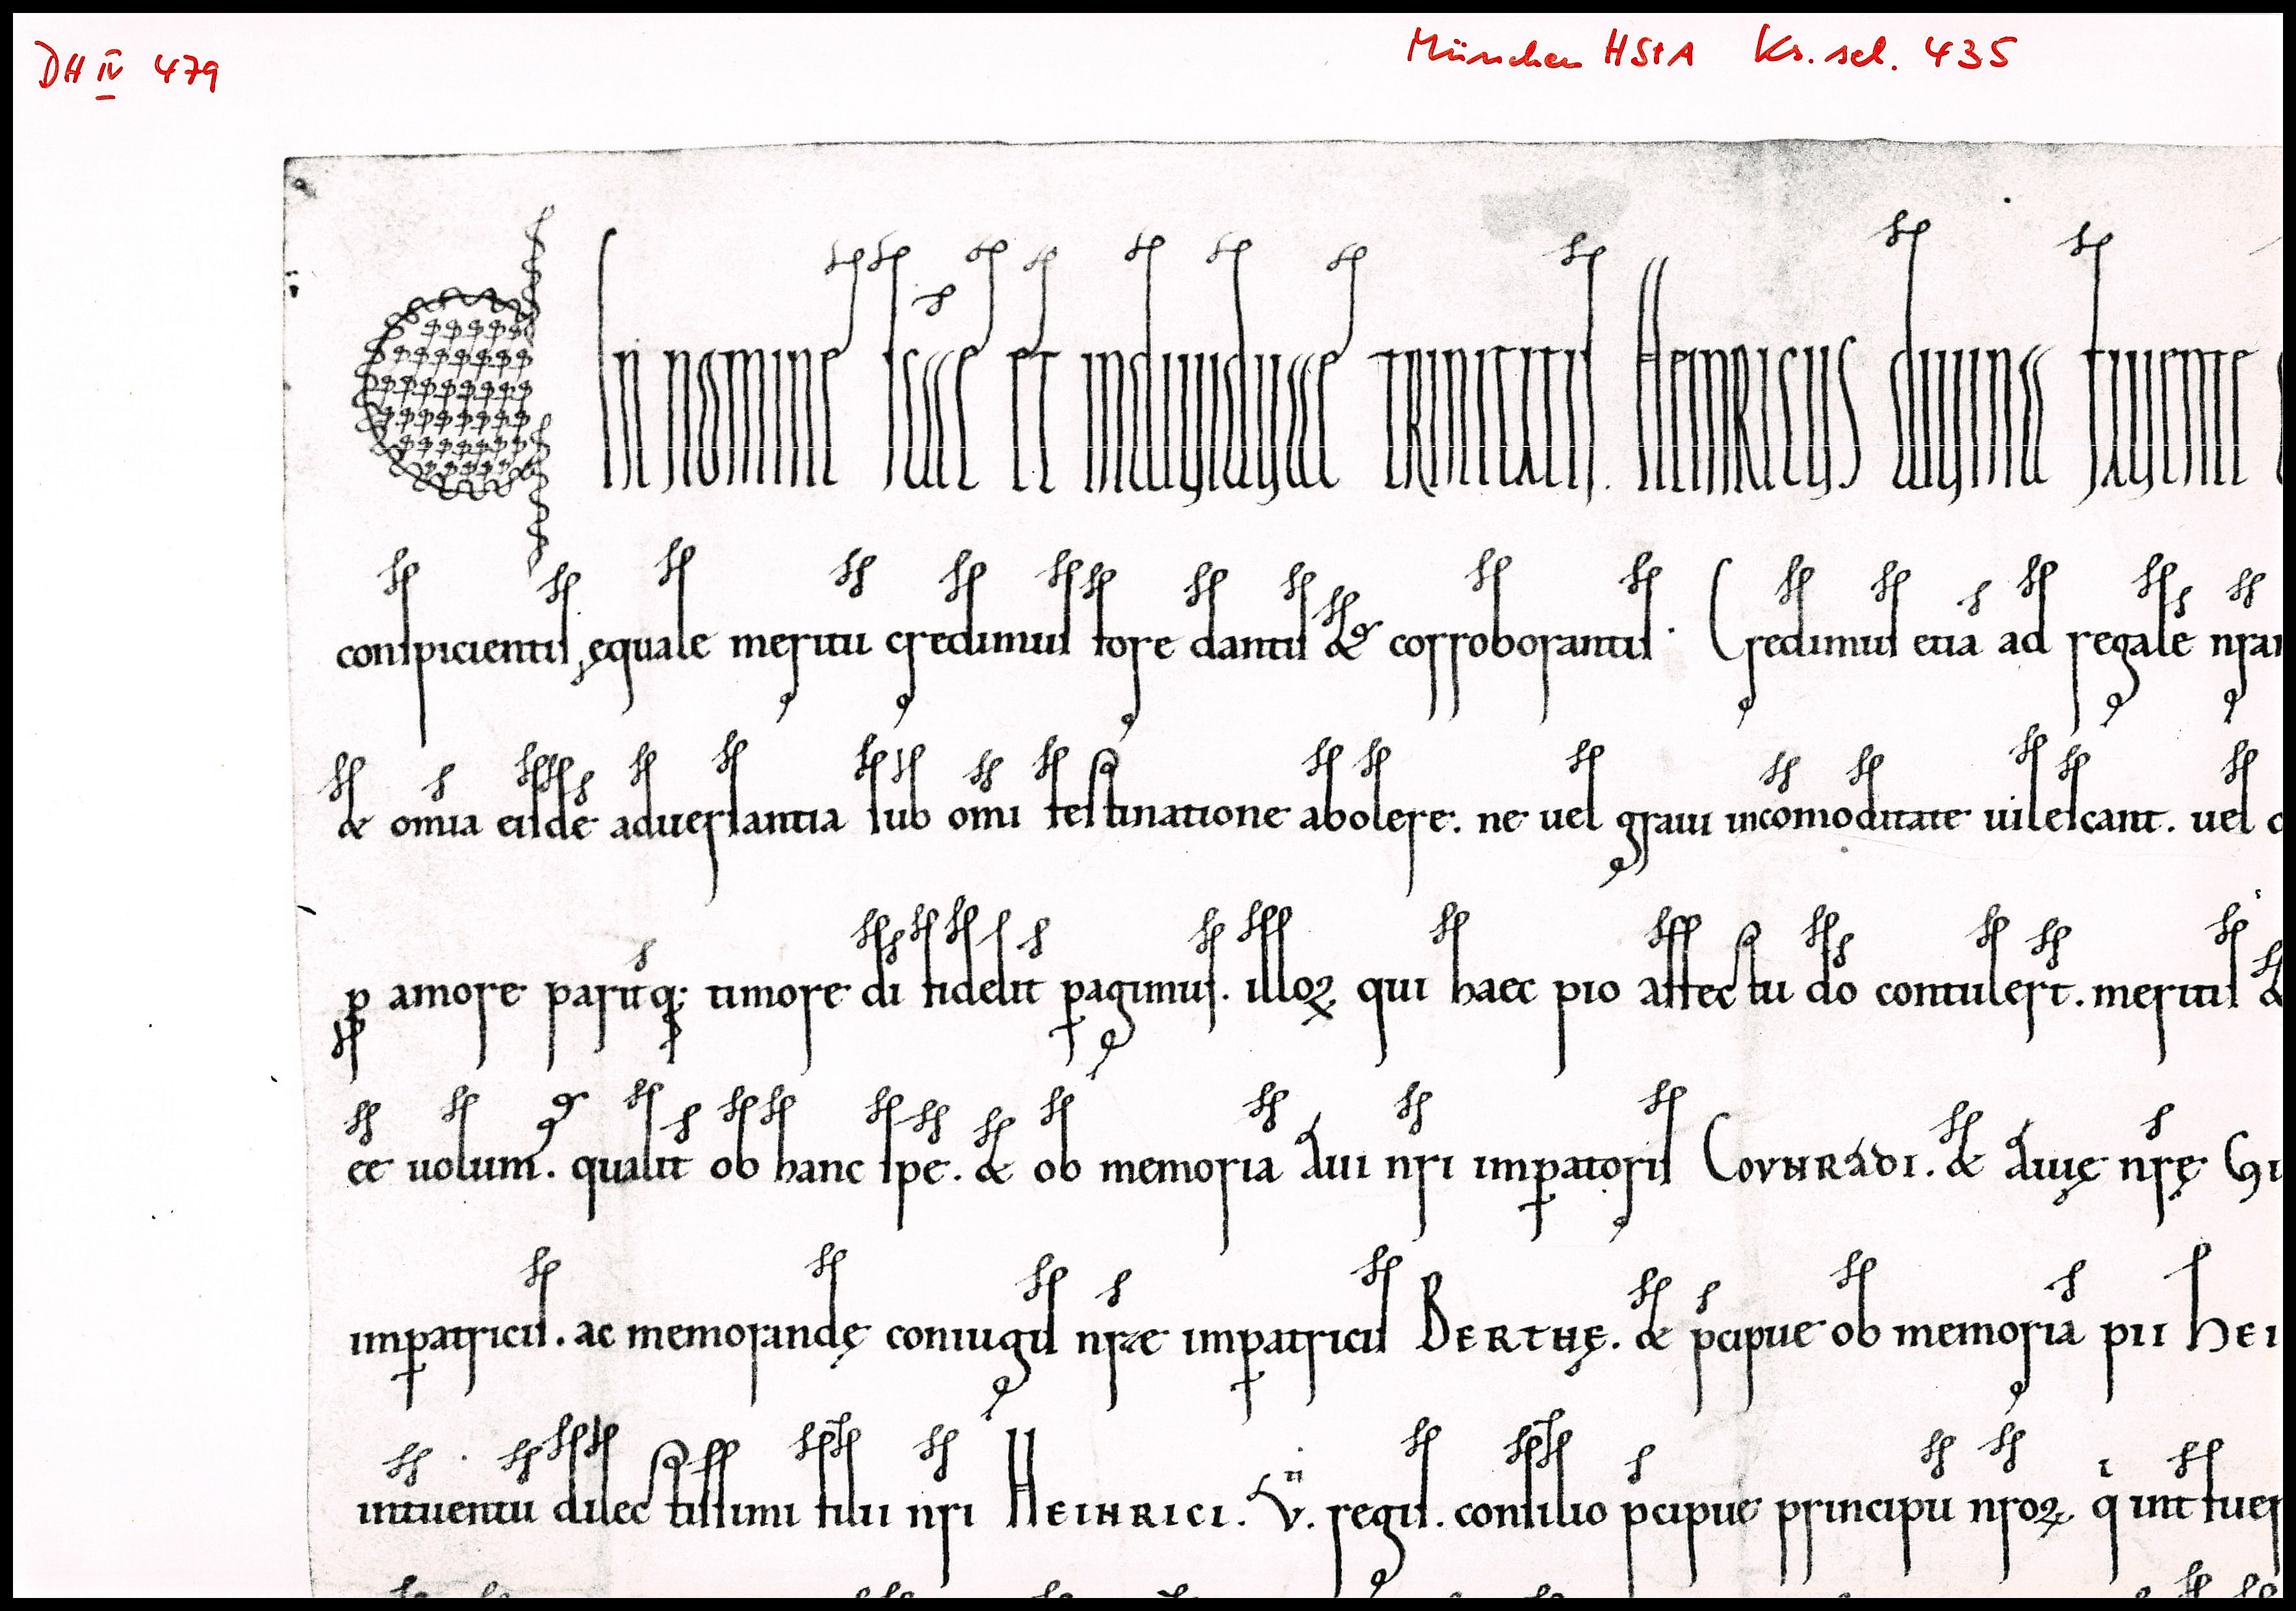 DH IV 479
München HStA Ks. sel. 435
In nomine scae et individuae trinitatis. Heinricus divina favente
conspicientis, ęquale meritu credimus fore dantis & corroborantis. Credimus etiā ad regalē nrā
& om̄ia eisdē adversantia sub om̄i festinatione abolere. ne vel gravi incōmoditate vilescant. vel
p amore parit̄q; timore di fidelit̄ pagimus. illoꝝ qui haec pio affectu dō contulert̄. meritis &
eē volum̄. qualit̄ ob hanc spē. & ob memoriā avi nr̄i impatoris COVNRADI. & avię nr̄ę Gi
impatricis. ac memorandę coniugis nr̄ae impatricis BERTHĘ. & p̄cipue ob memoriā pii HEI
intventu dilectissimi filii nr̄i HEINRICI. V̈. regis. consilio p̄cipue principū nr̄oꝝ. qͥ int̄fuer